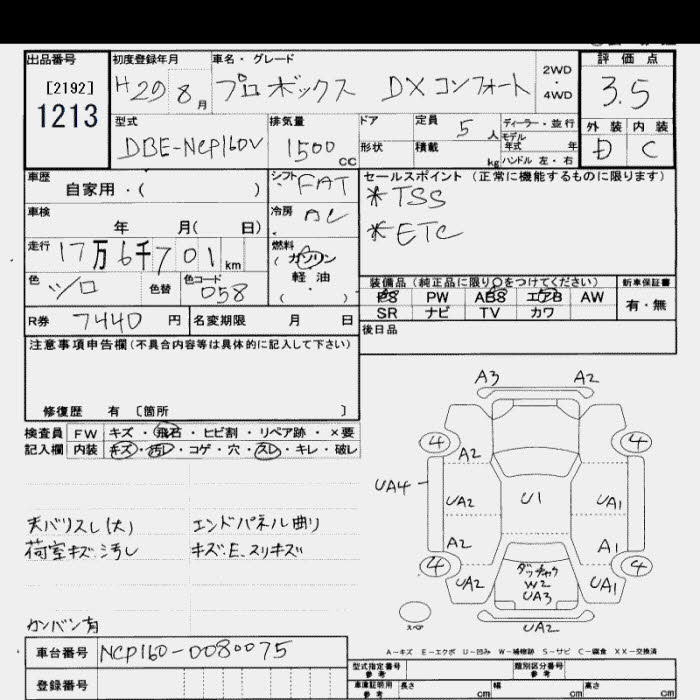 出品番号 [2192] 1213
初度登録年月 H29 8月
車名・グレード プロボックス DXコンフォート
2WD・4WD
評価点 3.5
外装 内装
D C
型式 DBE-NCP160V
排気量 1500 CC
ドア 形状
定員 5人
積載 kg
ディーラー・並行
モデル年式 年
ハンドル 左・右
車歴 自家用・( )
シフト FAT
セールスポイント (正常に機能するものに限ります)
*TSS
*ETC
車検 年 月( 日)
冷房 AC
走行 17万6千701km
燃料 (ガソリン 軽油 ・ )
色 シロ 色替 色コード 058
装備品(純正品に限り○をつけてください) 新車保証書
PS PW ABS エアB AW 有・無
SR ナビ TV カワ
R券 7440円 名変期限 月 日
後日品
注意事項申告欄(不具合内容等は具体的に記入して下さい)
修復歴 有 [箇所 ]
検査員 FW キズ・飛石・ヒビ割・リペア跡・×要
記入欄 内装 キズ・汚レ・コゲ・穴・スレ・キレ・破レ
天バリスレ(大) エンドパネル曲り
荷室キズ・汚レ キズ・E、スリキズ
カンバン有
A3 A2
4 4
A2
UA4
UA2 U1 UA1
A2 A1
4 4
UA2 ダッチャク W2 UA3 UA1
スペア
UA2
A-キズ E-エクボ U-凹み W-補修跡 S-サビ C-腐食 XX-交換済
車台番号 NCP160-0080075
登録番号
型式指定番号 参考 類別区分番号 参考
車庫証明用 参考 長さ cm 幅 cm 高さ cm